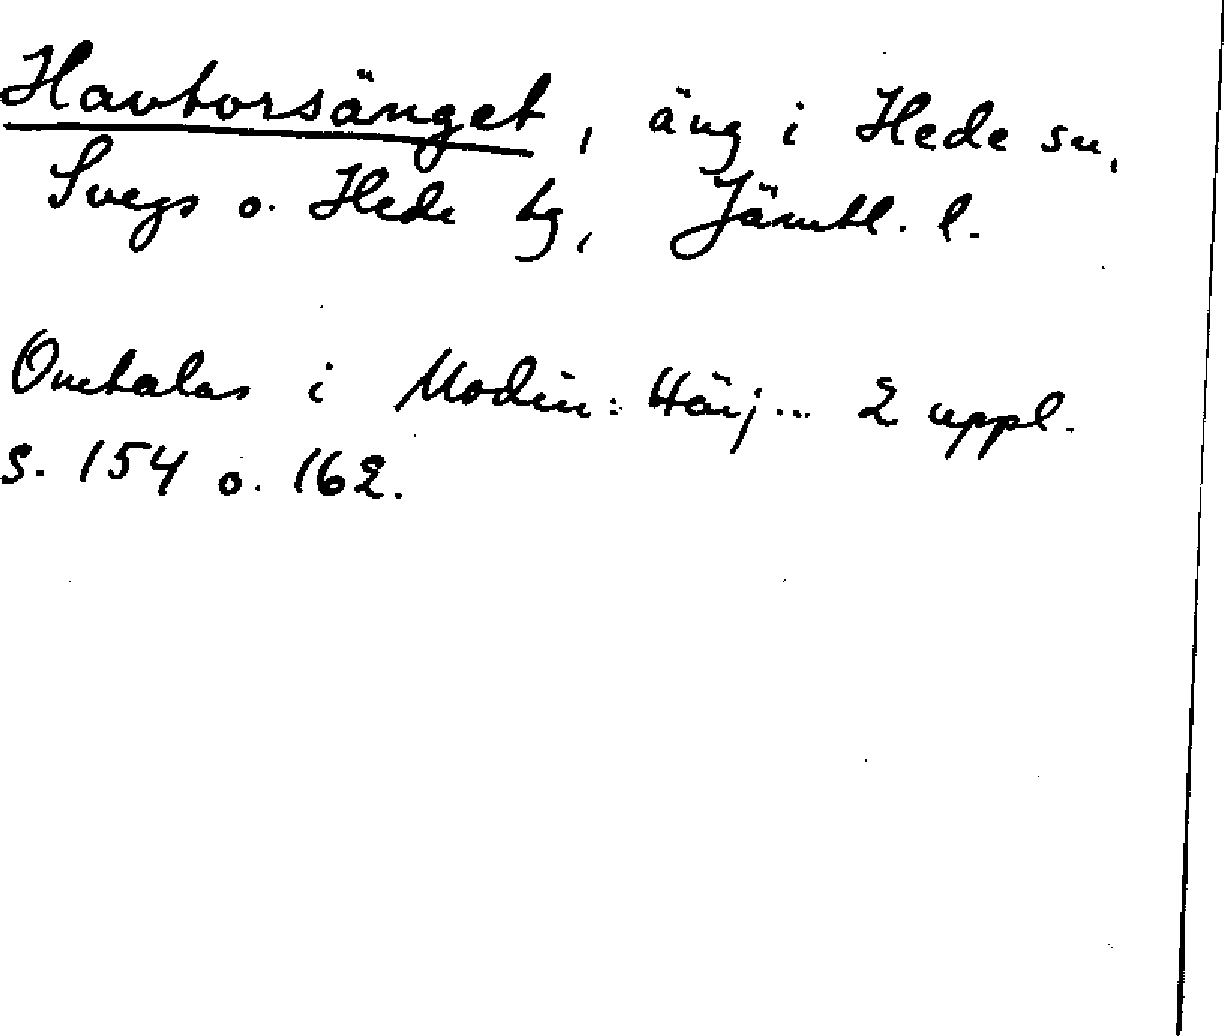 Havtorsänget, äng i Hede sn,
Svegs o. Hede tg, Jämtl. l.
Omtalas i Modin: Härj... 2 uppl.
s. 154 o. 162.